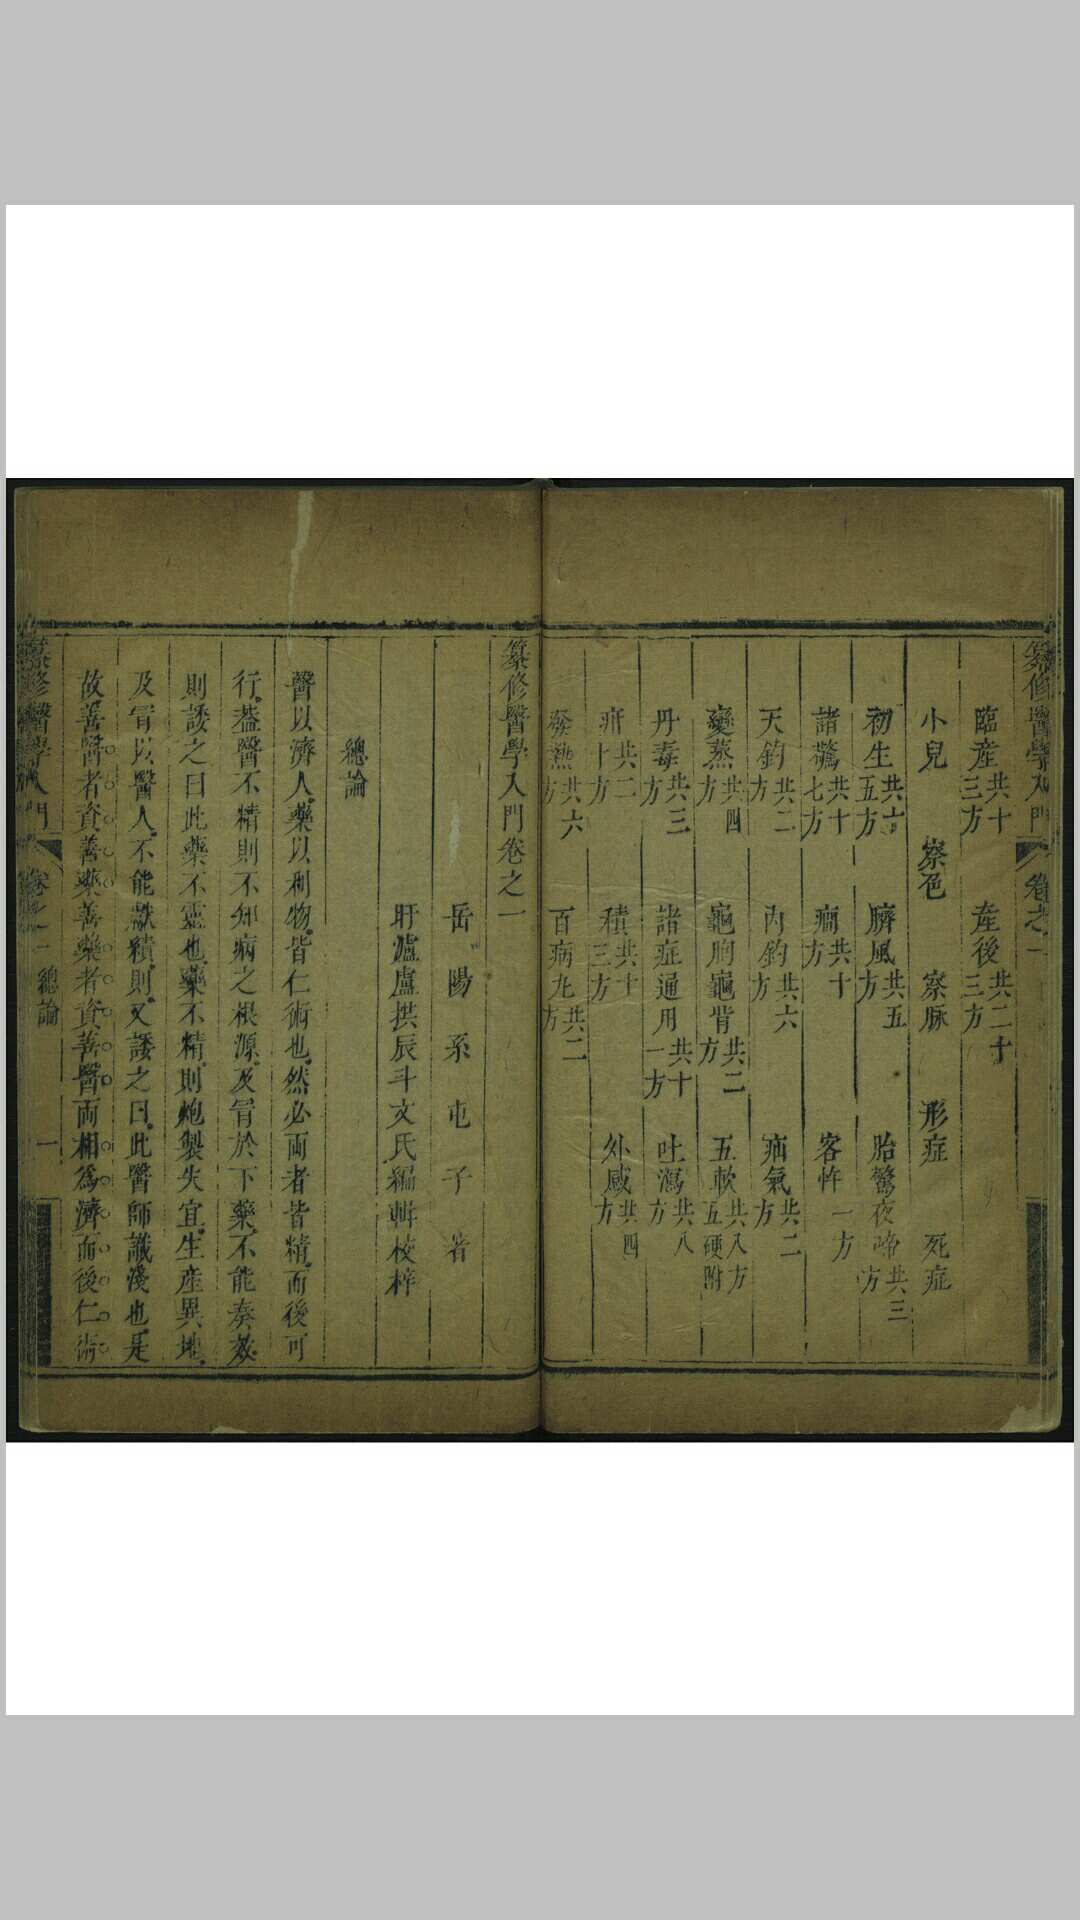 纂修醫學入門 卷之一
臨產共十三方 產後共二十三方
小兒 察色 察脉 形症 死症
初生共六五方 臍風共五方 胎驚夜啼共三方
諸驚共十七方 癇共十方 客忤一方
天釣共二方 內釣共六方 疝氣共二方
變蒸共四方 龜胸龜背共二方 五軟共八方五硬附
丹毒共三方 諸症通用共十一方 吐瀉共八方
疳共二十方 積共十三方 外感共四方
發熱共六方 百病丸共二方
纂修醫學入門卷之一
岳陽系屯子著
盱瀘盧拱辰斗文氏編輯校梓
總論
醫以濟人藥以利物皆仁術也然必兩者皆精而後可
行蓋醫不精則不知病之根源及冐於下藥不能奏效
則諉之曰此藥不靈也藥不精則炮製失宜生產異地
及冐以醫人不能獻績則又諉之曰此醫師識淺也是
故善醫者資善藥善藥者資善醫兩相爲濟而後仁術
纂修醫學入門 卷之一 總論 一